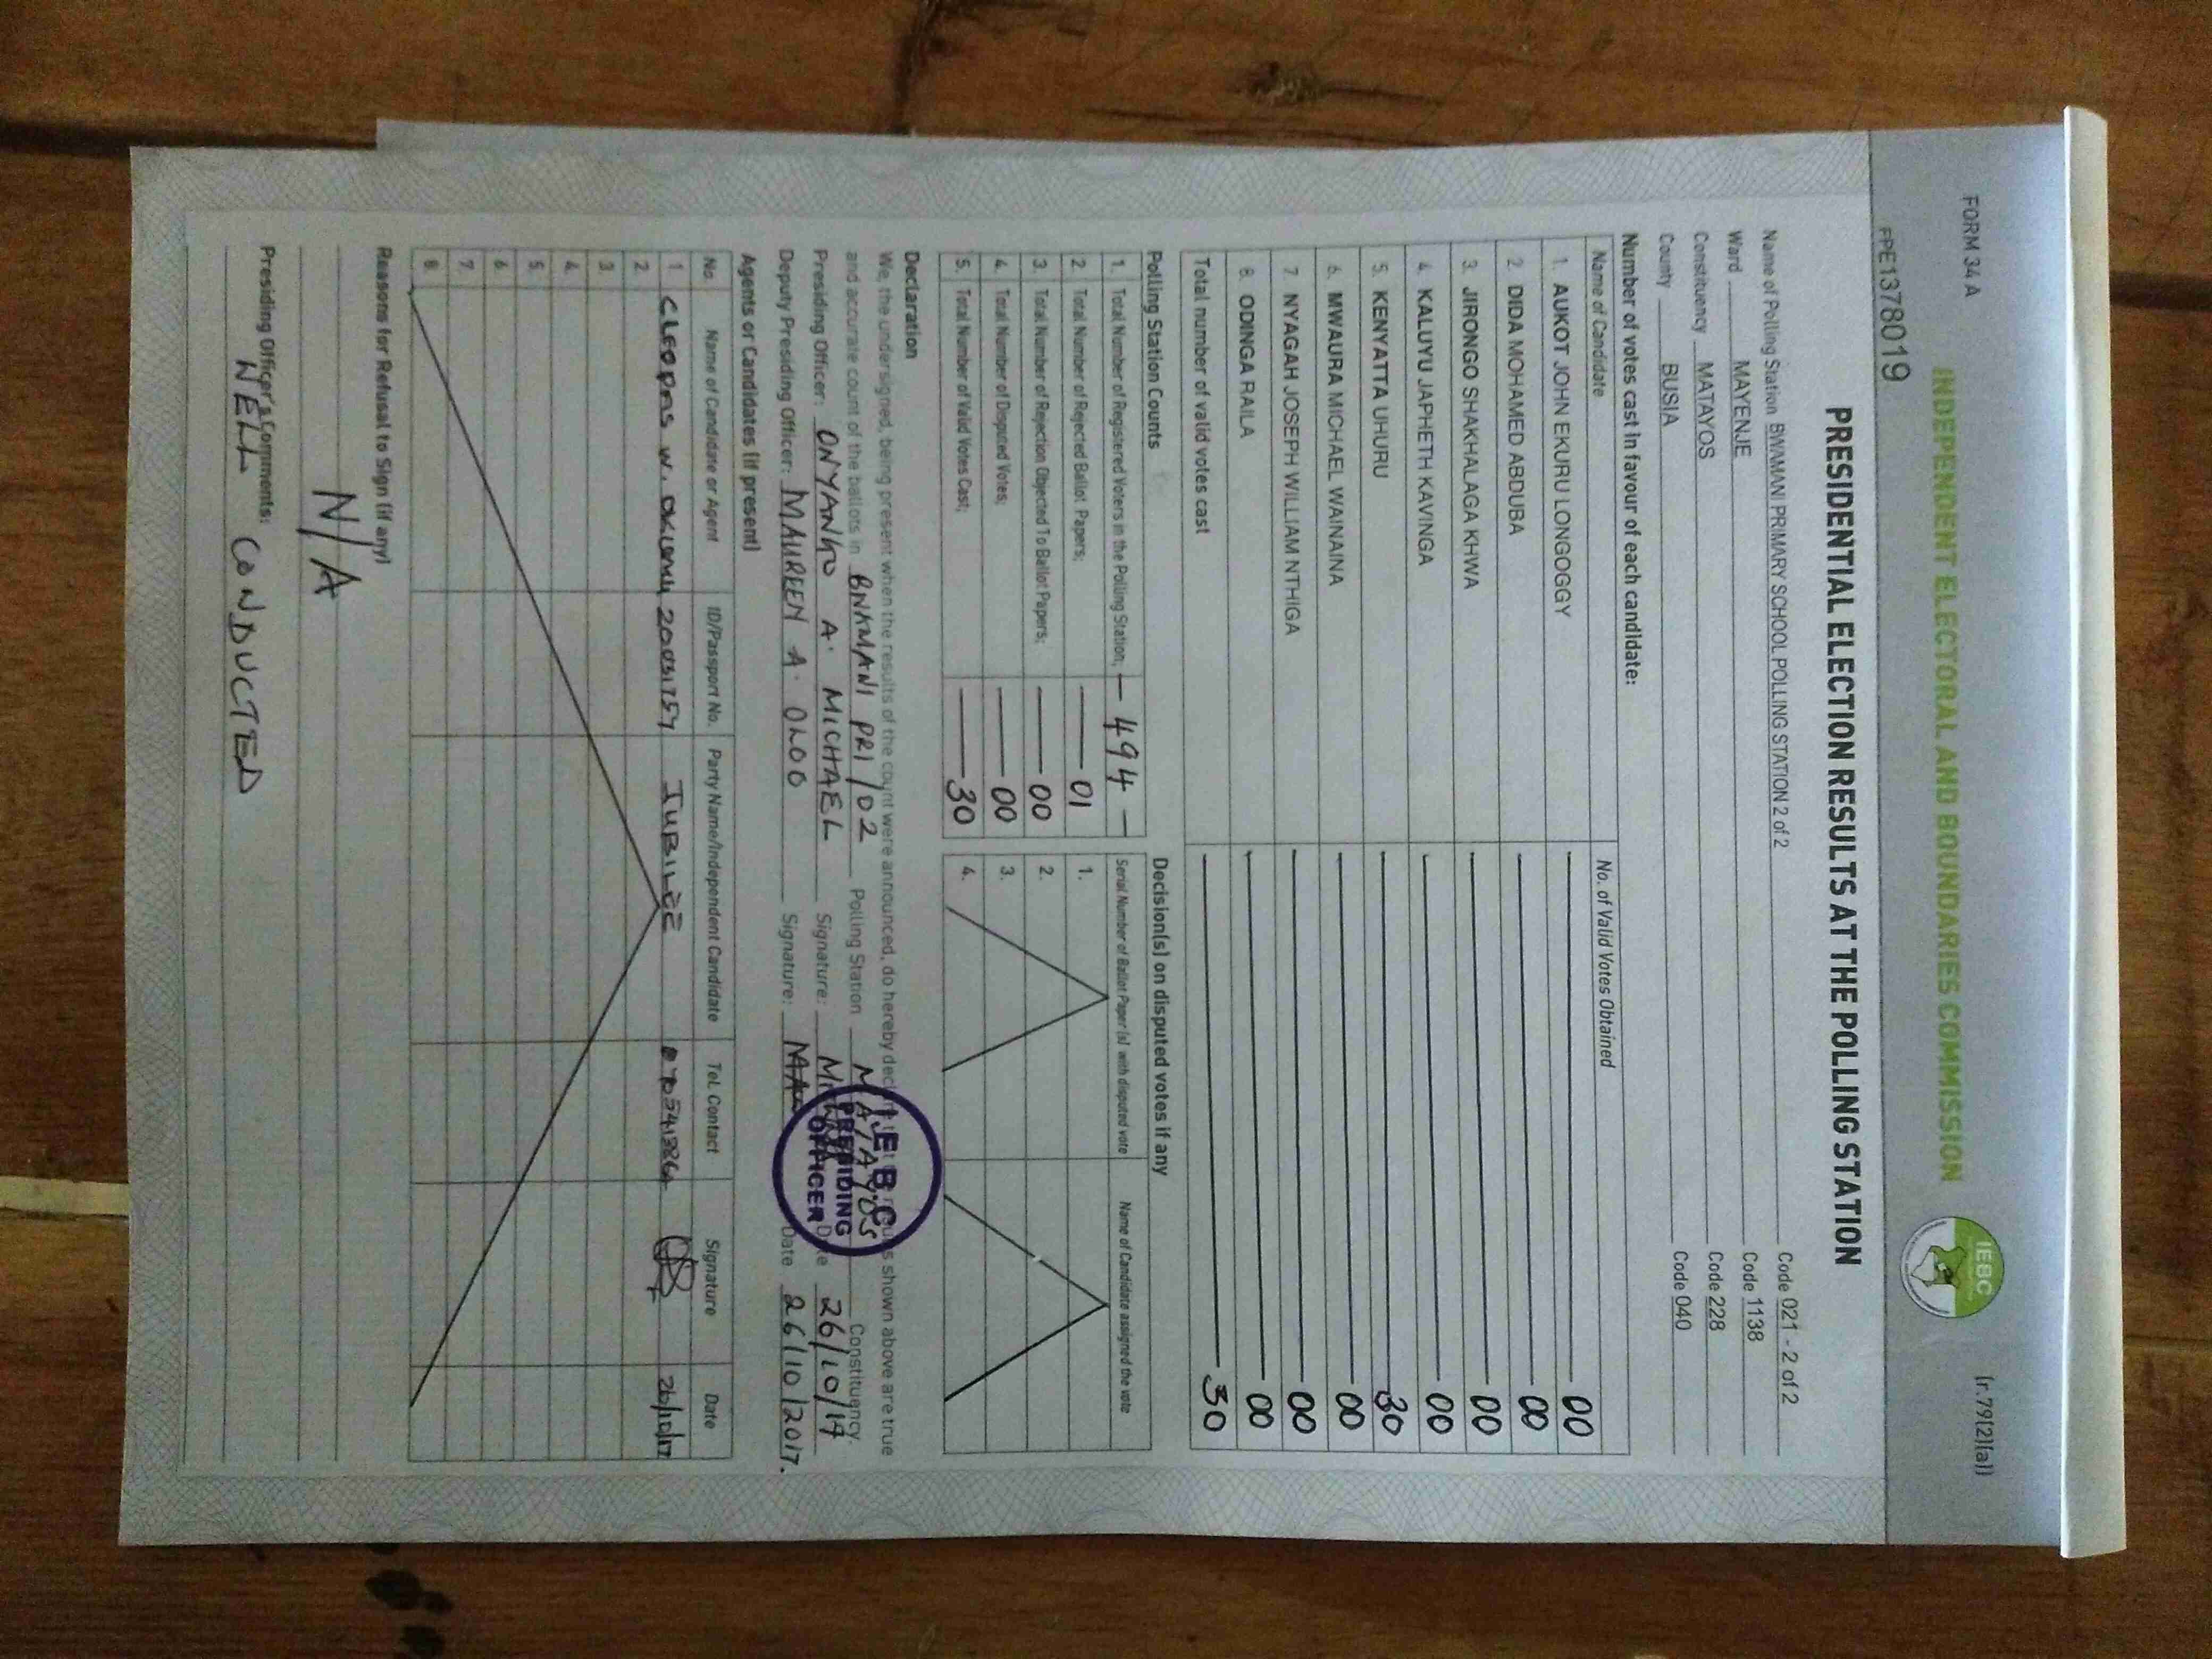 FORM 34 A
(r.79(2)(a))
INDEPENDENT ELECTORAL AND BOUNDARIES COMMISSION
IEBC
FPE1378019
PRESIDENTIAL ELECTION RESULTS AT THE POLLING STATION
Name of Polling Station BWAMANI PRIMARY SCHOOL POLLING STATION 2 of 2 Code 021 - 2 of 2
Ward MAYENJE Code 1138
Constituency MATAYOS Code 228
County BUSIA Code 040
Number of votes cast in favour of each candidate:
Name of Candidate No. of Valid Votes Obtained
1. AUKOT JOHN EKURU LONGOGGY 00
2. DIDA MOHAMED ABDUBA 00
3. JIRONGO SHAKHALAGA KHWA 00
4. KALUYU JAPHETH KAVINGA 00
5. KENYATTA UHURU 30
6. MWAURA MICHAEL WAINAINA 00
7. NYAGAH JOSEPH WILLIAM NTHIGA 00
8. ODINGA RAILA 00
Total number of valid votes cast 30
Polling Station Counts
1. Total Number of Registered Voters in the Polling Station; 494
2. Total Number of Rejected Ballot Papers; 01
3. Total Number of Rejection Objected To Ballot Papers; 00
4. Total Number of Disputed Votes; 00
5. Total Number of Valid Votes Cast; 30
Decision(s) on disputed votes if any
Serial Number of Ballot Paper (s) with disputed vote Name of Candidate assigned the vote
1.
2.
3.
4.
Declaration
We, the undersigned, being present when the results of the count were announced, do hereby declare that the results shown above are true
and accurate count of the ballots in BWAMANI PRI/02 Polling Station MATAYOS Constituency.
Presiding Officer: ONYANGO A. MICHAEL Signature: Date 26/10/17
Deputy Presiding Officer: MAUREEN A. OLOO Signature: Date 26/10/2017.
I.E.B.C
PRESIDING
OFFICER
Agents or Candidates (if present)
No. Name of Candidate or Agent ID/Passport No. Party Name/Independent Candidate Tel. Contact Signature Date
1 CLEOPAS W. JUBILEE 26/10/17
2.
3.
4.
5.
6.
7.
8.
Reasons for Refusal to Sign (if any)
N/A
Presiding Officer's Comments:
WELL CONDUCTED